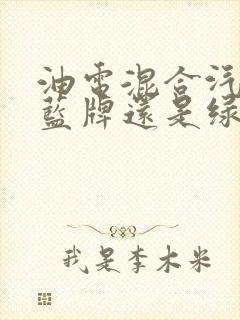 油電混合汽
藍牌還是綠
我是李木米